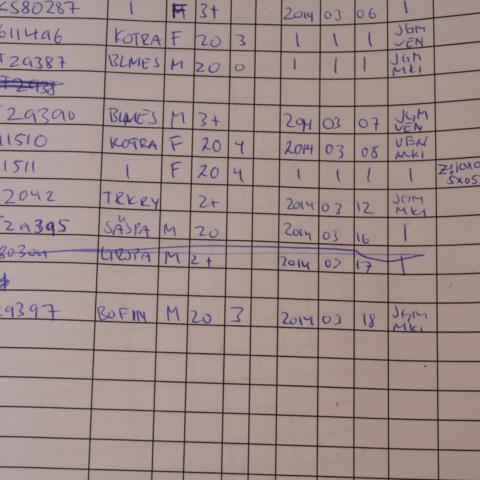 CS80287 1 M 3+ 2014 03 06 1
611496 KOTRA F 20 3 1 1 1 JGM VEN
T29387 BLMES M 20 0 1 1 1 JGM MKI
T2938
T29390 BLMES M 3+ 2014 03 07 JGM VEN
11510 KOTRA F 20 4 2014 03 08 VEN MKI
1511 1 F 20 4 1 1 1 1
2042 TRKRY 2+ 2014 03 12 JGM MKI
T29395 SÄSPA M 20 2014 03 16 1
GRSPA M 2+ 2014 03 17 1
29397 BOFIN M 20 3 2014 03 18 JGM MKI